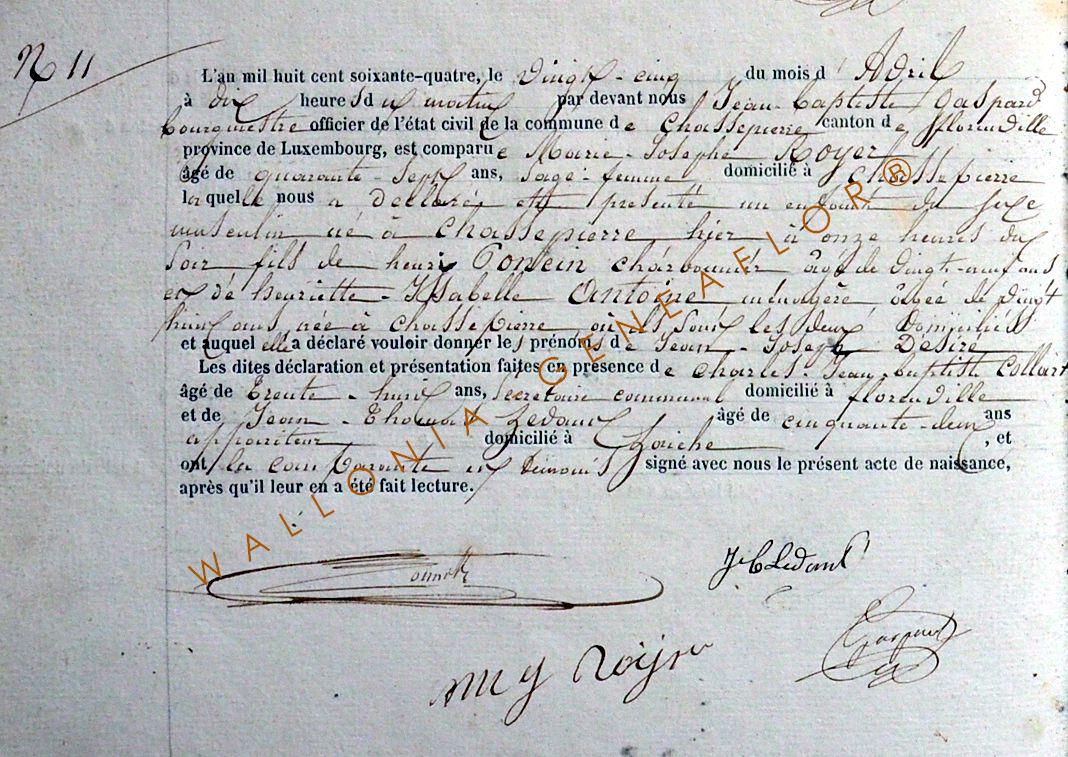 N 11
L'an mil huit cent soixante-quatre, le vingt-cinq du mois d'Avril
à dix heures du matin par devant nous Jean-Baptiste Gaspard
bourgmestre officier de l'état civil de la commune de Chassepierre canton de florenville
province de Luxembourg, est comparue Marie-Josephe Royer
âgé de quarante-sept ans, sage-femme domicilié à Chassepierre
laquelle nous a déclaré et présenté un enfant du sexe
masculin né à Chassepierre hier à onze heures du
soir fils de henri charbonnier âgé de vingt-neuf ans
et de henriette-Isabelle Antoine ménagère âgée de vingt
huit ans née à Chassepierre où ils sont les deux domiciliés
et auquel elle a déclaré vouloir donner les prénoms de Jean-Joseph Désiré
Les dites déclaration et présentation faites en présence de Charles-Jean-baptiste Collart
âgé de trente-huit ans, Secrétaire communal domicilié à florenville
et de Jean-Thomas Ledant âgé de cinquante-deux ans
appariteur domicilié à Laiche, et
ont la comparante et témoins signé avec nous le présent acte de naissance,
après qu'il leur en a été fait lecture.
WALLONIA GENEAFLOR®
Ledant
Gaspard